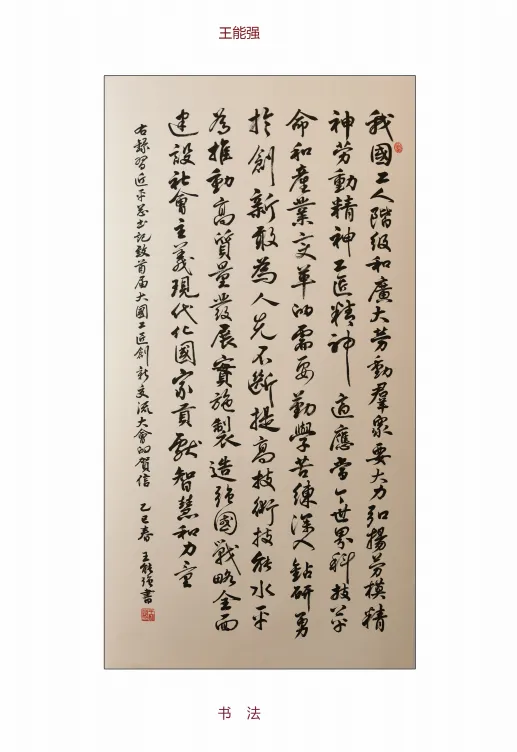 王能强
我國工人階級和廣大劳動羣眾要大力弘揚劳模精
神劳動精神工匠精神適應當今世界科技革
命和產業变革的需要勤學苦練深入鉆研勇
於創新敢為人先不斷提高技術技能水平
為推動高質量發展實施製造强國戰略全面
建設社會主義現代化國家貢獻智慧和力量
右錄習近平总书記致首届大國工匠創新交流大會的賀信 乙巳春 王能强書
书 法